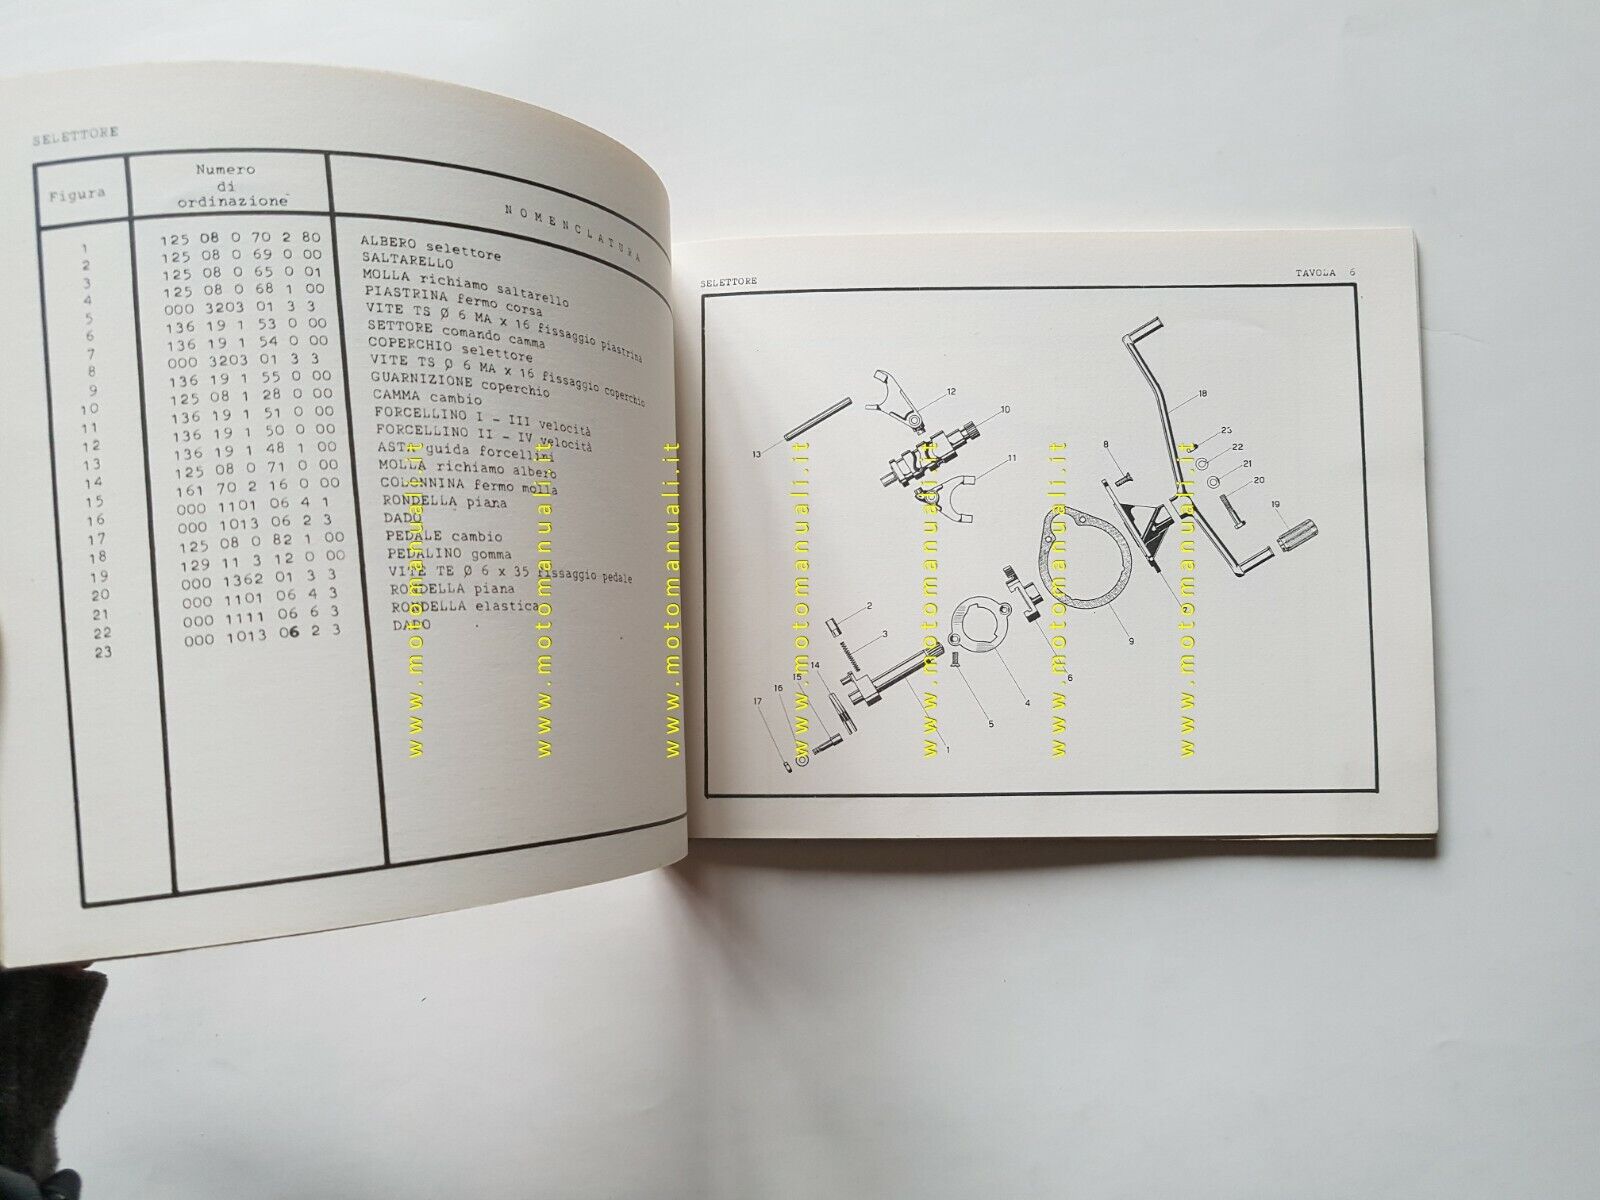 SELETTORE
Figura
Numero
di
ordinazione
NOMENCLATURA
1 125 08 0 70 2 80 ALBERO selettore
2 125 08 0 69 0 00 SALTARELLO
3 125 08 0 65 0 01 MOLLA richiamo saltarello
4 125 08 0 68 1 00 PIASTRINA fermo corsa
5 000 3203 01 3 3 VITE TS Ø 6 MA x 16 fissaggio piastrina
6 136 19 1 53 0 00 SETTORE comando camma
7 136 19 1 54 0 00 COPERCHIO selettore
8 000 3203 01 3 3 VITE TS Ø 6 MA x 16 fissaggio coperchio
9 136 19 1 55 0 00 GUARNIZIONE coperchio
10 125 08 1 28 0 00 CAMMA cambio
11 136 19 1 51 0 00 FORCELLINO I - III velocità
12 136 19 1 50 0 00 FORCELLINO II - IV velocità
13 136 19 1 48 1 00 ASTA guida forcellini
14 125 08 0 71 0 00 MOLLA richiamo albero
15 161 70 2 16 0 00 COLONNINA fermo molla
16 000 1101 06 4 1 RONDELLA piana
17 000 1013 06 2 3 DADO
18 125 08 0 82 1 00 PEDALE cambio
19 129 11 3 12 0 00 PEDALINO gomma
20 000 1362 01 3 3 VITE TE Ø 6 x 35 fissaggio pedale
21 000 1101 06 4 3 RONDELLA piana
22 000 1111 06 6 3 RONDELLA elastica
23 000 1013 06 2 3 DADO
SELETTORE TAVOLA 6
12
18
10
13
23
22
8
11
21
20
19
2
3
7
9
14
15
6
16
4
17
5
1
www.motomanuali.it
www.motomanuali.it
www.motomanuali.it
www.motomanuali.it
www.motomanuali.it
www.motomanuali.it
www.motomanuali.it